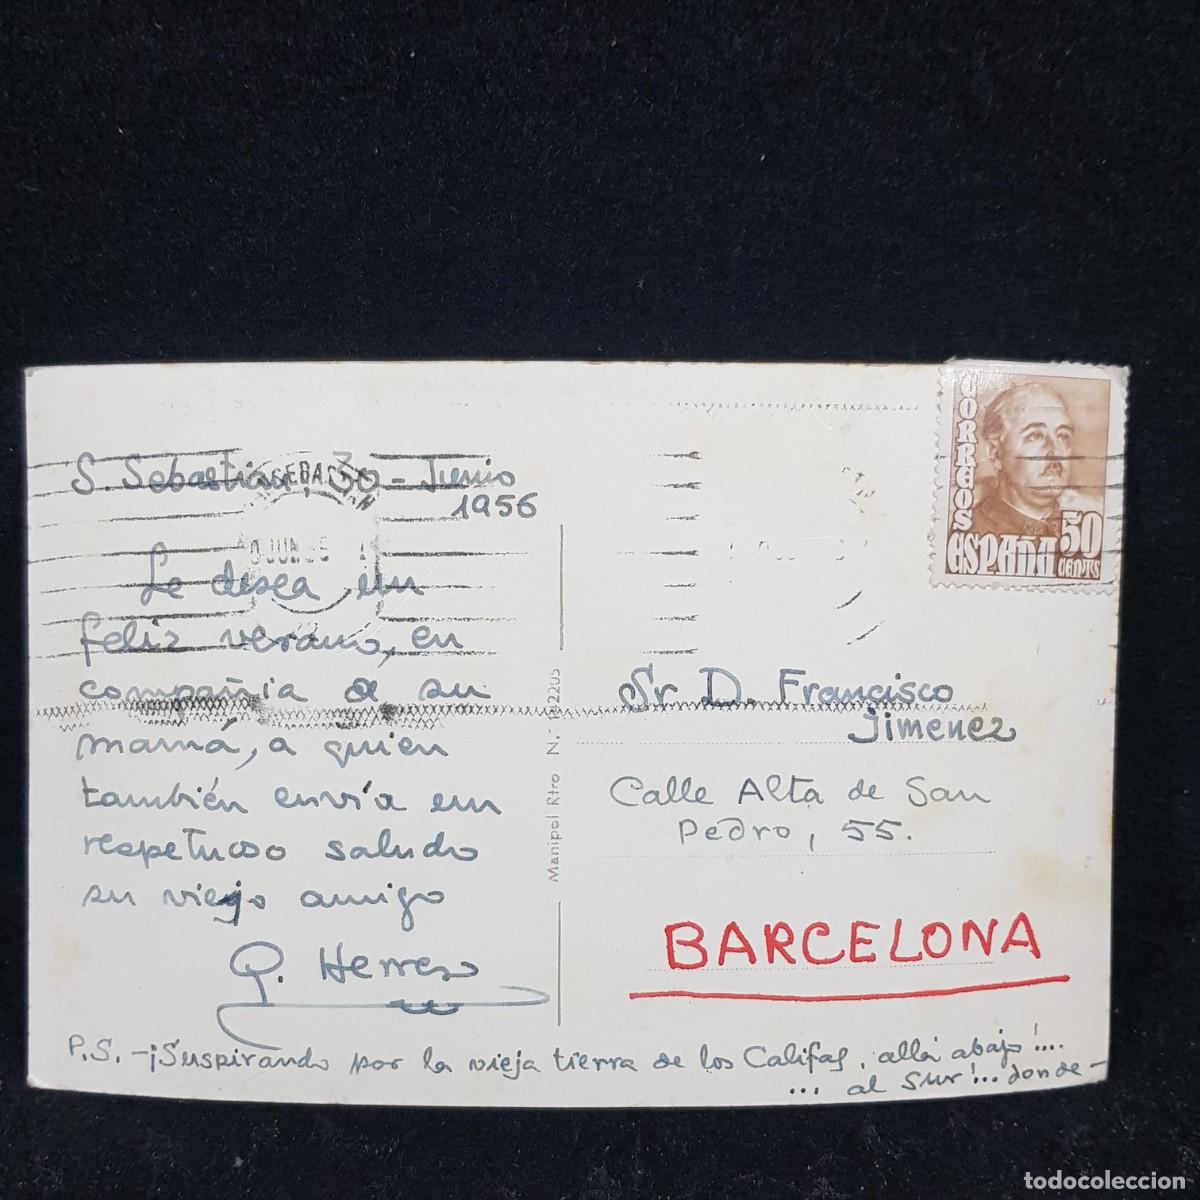 S. Sebastian, 30 - Junio
1956
Le desea un
feliz verano, en
compañia de su
mamá, a quien
también envía un
respetuoso saludo
su viejo amigo
P.S. - ¡Suspirando por la vieja tierra de los Califas, allá abajo!....
... al sur!... donde -
Manipol Rtro N.-
CORREOS
ESPAÑA
50
CENTS
Sr. D. Francisco
Jimenez
Calle Alta de San
Pedro, 55.
BARCELONA
todocoleccion